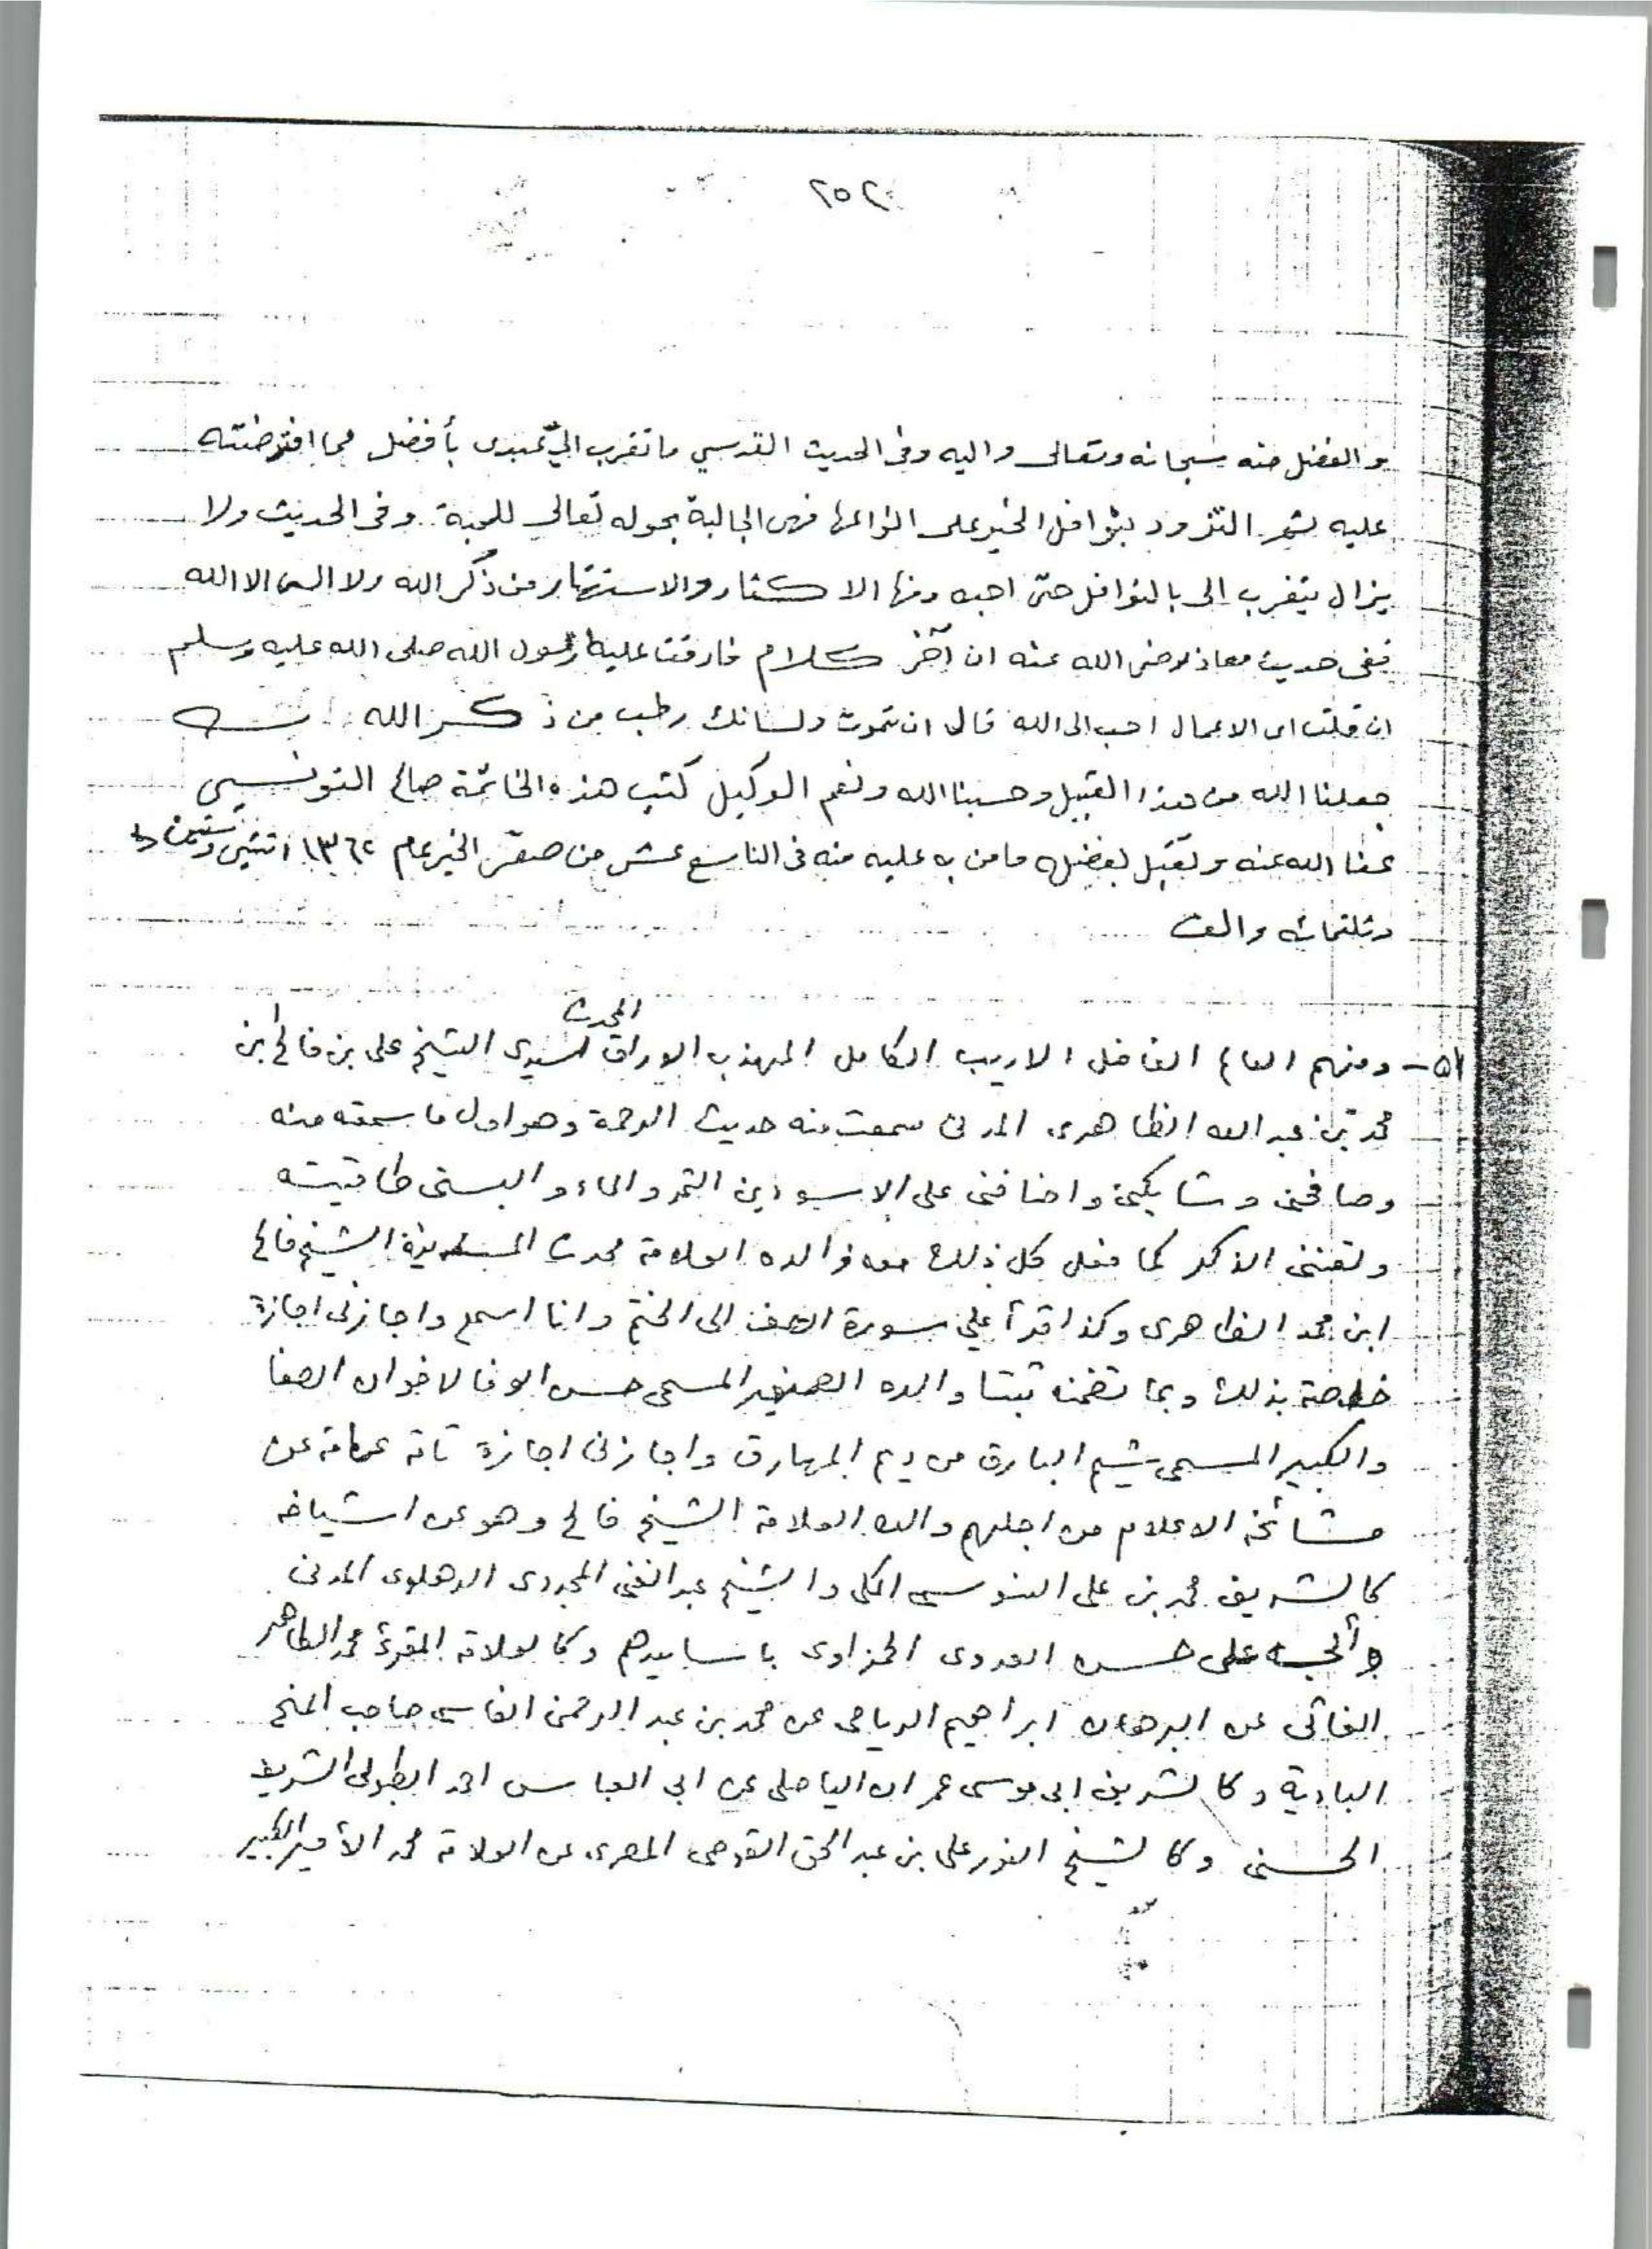 ٢٥٢
والفضل منه سبحانه وتعالى واليه وفى الحديث القدسي ما تقرب اليّ عبدى بأفضل مما افترضته
عليه ثم التزود بنوافل الخير على انواعها فهى الجالبة بحوله تعالى للمحبة وفى الحديث ولا
يزال يتقرب الى بالنوافل حتى احبه ومنها الاكثار والاستهتار من ذكر الله ولا اله الا الله
ففى حديث معاذ رضى الله عنه ان آخر كلام فارقت عليه رسول الله صلى الله عليه وسلم
ان قلت اى الاعمال احب الى الله قال ان تموت ولسانك رطب من ذكر الله
جعلنا الله من هذا القبيل وحسبنا الله ونعم الوكيل كتب هذه الخاتمة صالح التونسي
عفا الله عنه وتقبل بفضله ما من به عليه منه فى التاسع عشر من صفر الخير عام ١٣٦٢ اثنتين وستين
وثلثمائه والف
٥١- ومنهم العالم الفاضل الاريب الكامل المهذب الاراق المحدث سيدى الشيخ على بن فالح ابن
محمد بن عبد الله الظاهرى المدنى سمعت منه حديث الرحمة وهو اول ما سمعته منه
وصافحنى وشابكنى واضافنى على الاسودين التمر والماء والبسنى طاقيته
ولقننى الذكر كما فعل كل ذلك معه والده العلامة محدث المدينة الشيخ فالح
ابن محمد الظاهرى وكذا قرأ علي سورة الصف الى الختم وانا اسمع واجازنى اجازة
خاصة بذلك وبما تضمنه ثبتا والده الصغير المسمى حسن الوفا لاخوان الصفا
والكبير المسمى شيم البارق من ديم المهارق واجازنى اجازة تامة عامة عن
مشائخه الاعلام من اجلهم والده العلامة الشيخ فالح وهو عن اشياخه
كالشريف محمد بن على السنوسى المكى والشيخ عبد الغنى المجددى الدهلوى المدنى
على حسن العدوى الحمزاوى باسانيدهم وكالعلامة المقرئ محمد الطاهر
الغاتى عن البرهان ابراهيم الرياحى عن محمد بن عبد الرحمن الفاسى صاحب المنح
البادية وكالشريف ابى موسى عمران الياصلى عن ابى العباس احمد الطبولى الشريف
الحسنى وكالشيخ النور على بن عبد الحق القوصى المصرى عن العلامة محمد الأمير الكبير